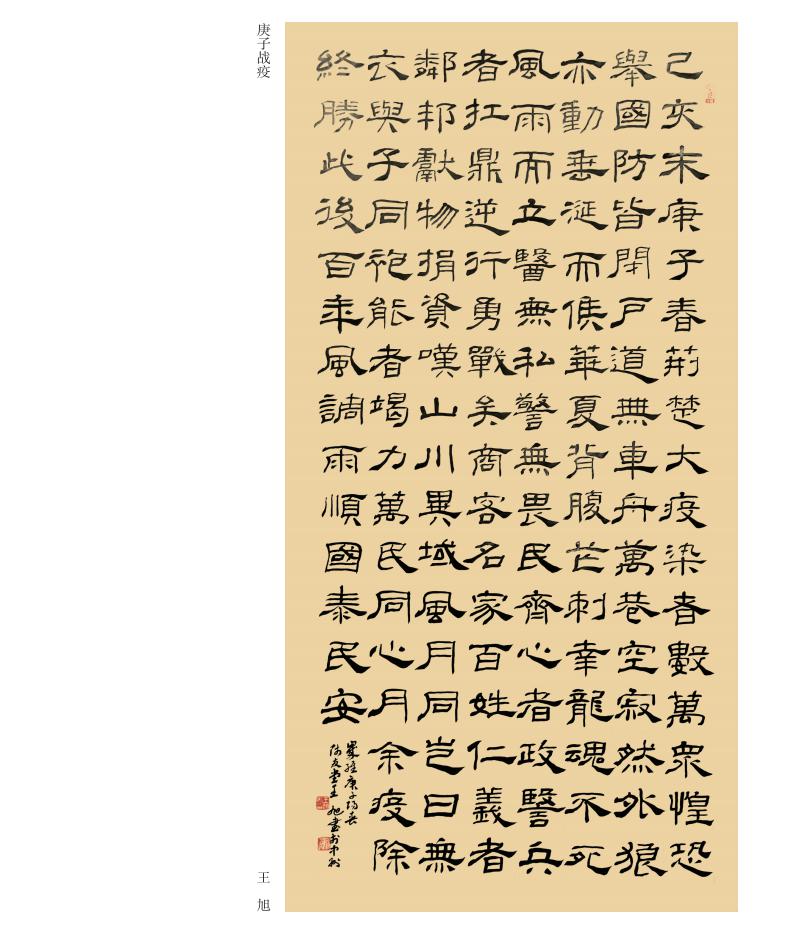 己亥末庚子春荊楚大疫染者數萬眾惶恐
舉國防皆閉戶道無車舟萬巷空寂然外狼
亦動垂涎而俟華夏背腹芒刺幸龍魂不死
風雨而立醫無私警無畏民齊心者政醫兵
者扛鼎逆行勇戰矣商客名家百姓仁義者
鄰邦獻物捐資嘆山川異域風月同豈曰無
衣與子同袍能者竭力萬民同心月余疫除
終勝此後百年風調雨順國泰民安
庚子陽春
王旭書於中州
庚子战疫
王 旭